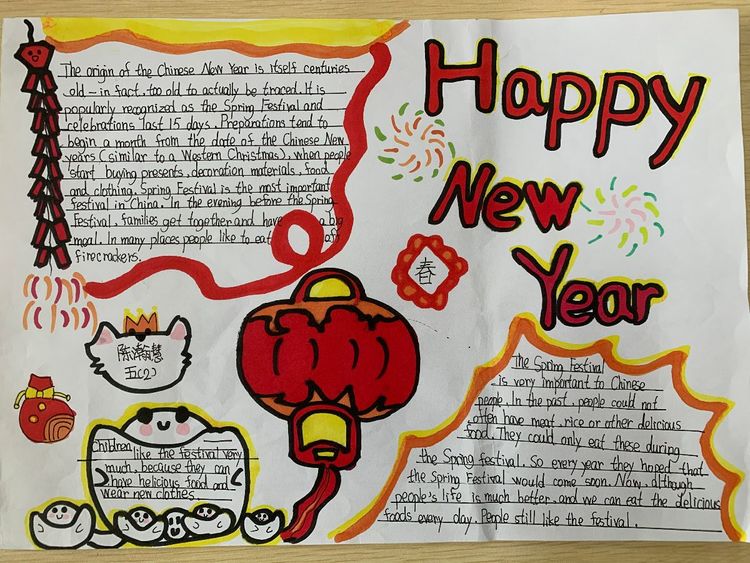 The origin of the Chinese New Year is itself centuries
old - in fact, too old to actually be traced. It is
popularly recognized as the Spring Festival and
celebrations last 15 days. Preparations tend to
begin a month from the date of the Chinese New
years (similar to a Western Christmas), when people
start buying presents, decoration materials, food
and clothing. Spring Festival is the most important
festival in China. In the evening before the Spring
Festival, families get together and have a big
meal. In many places people like to eat
firecrackers.
Happy
New
Year
春
陈瀚慧
五(2)
Children like the festival very
much, because they can
have helicious food and
wear new clothes.
The Spring Festival
is very important to Chinese
people. In the past, people could not
often have meat, rice or other delicious
food. They could only eat these during
the Spring festival. So every year they hoped that
the Spring Festival would come soon. Now, although
people's life is much better, and we can eat the delicious
foods every day. People still like the festival.